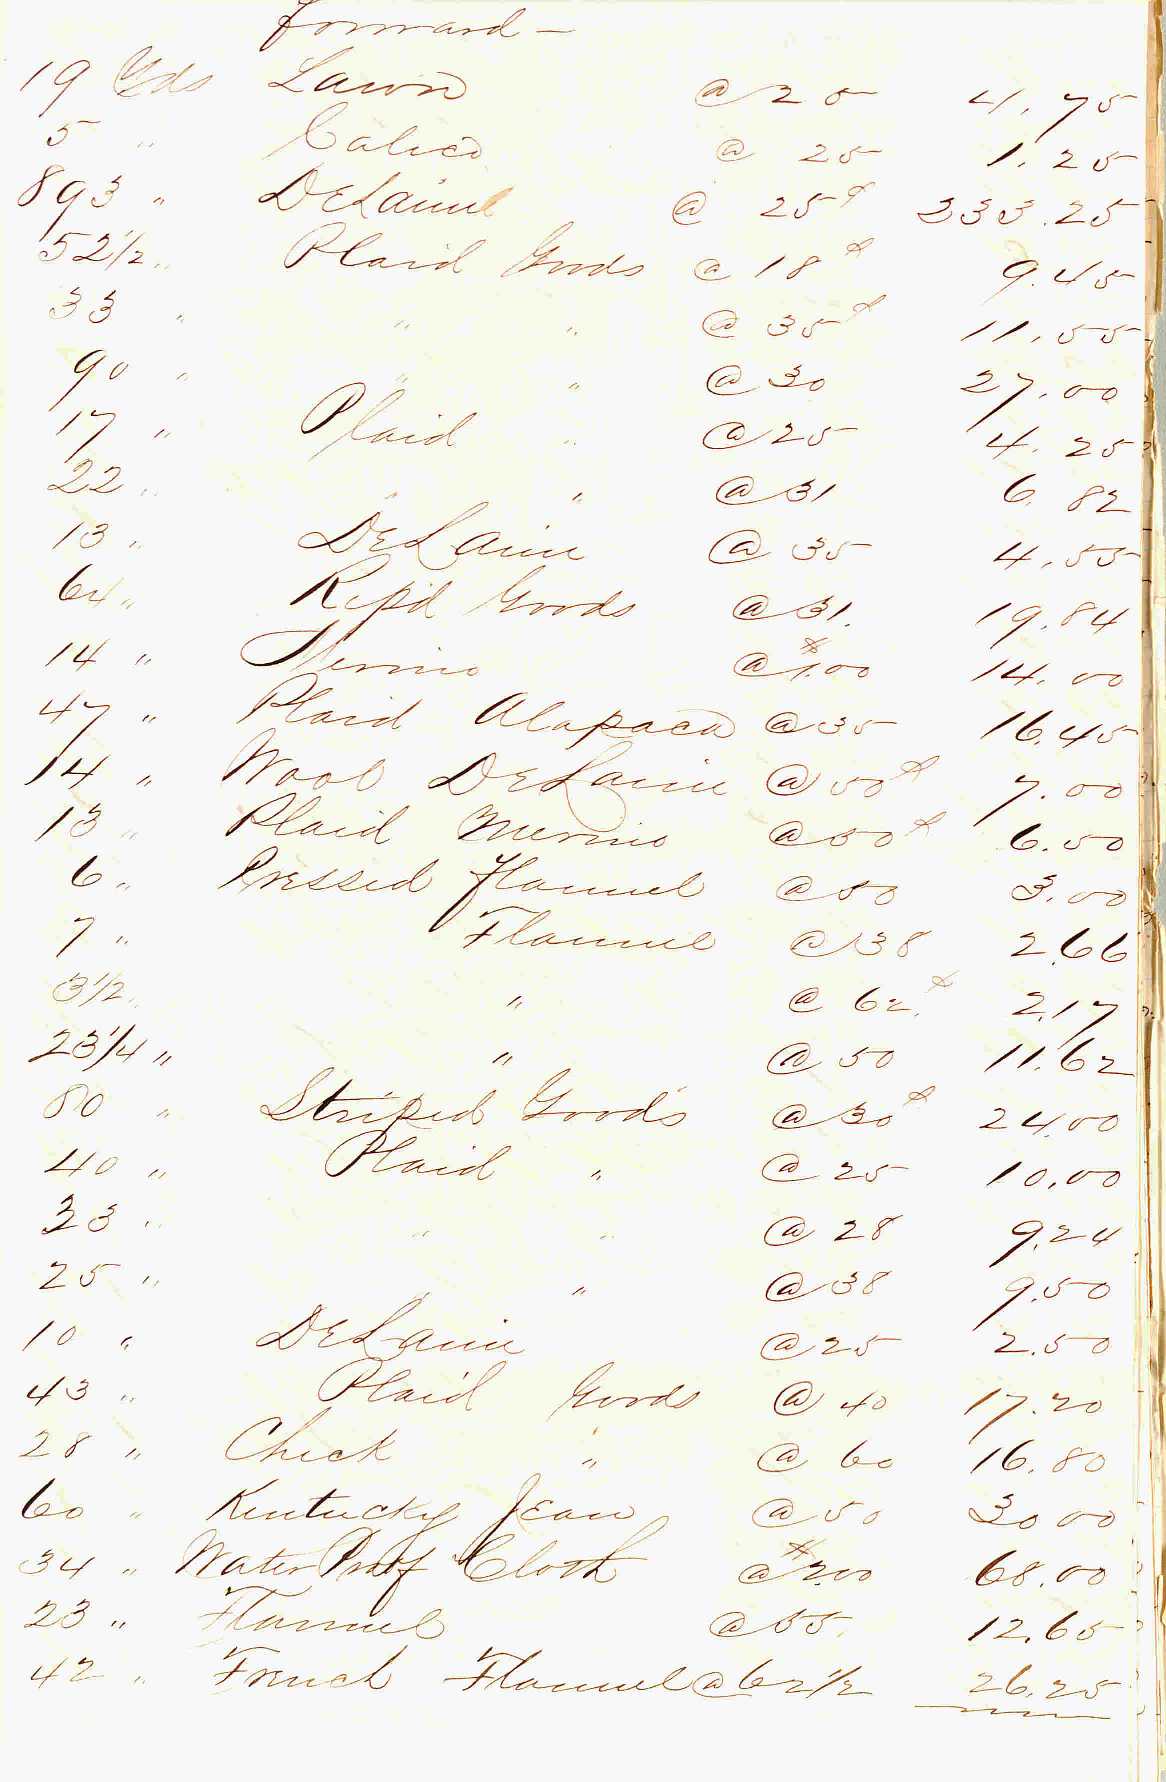 Forward —
19 Yds Lawn @ 25 4.75
5 " Calico @ 25 1.25
893 " DeLaine @ 25¢ 333.25
52 1/2 " Plaid Goods @ 18¢ 9.45
33 " " " @ 35¢ 11.55
90 " " " @ 30 27.00
17 " Plaid " @ 25 4.25
22 " " " @ 31 6.82
13 " DeLaine @ 35 4.55
64 " Rep'd Goods @ 31. 19.84
14 " Merino @ $1.00 14.00
47 " Plaid Alapaca @ 35 16.45
14 " Wool DeLaine @ 50¢ 7.00
13 " Plaid Merino @ 50¢ 6.50
6 " Pressed Flannel @ 50 3.00
7 " Flannel @ 38 2.66
3 1/2 " " @ 62¢ 2.17
23 1/4 " " @ 50 11.62
80 " Striped Goods @ 30¢ 24.00
40 " Plaid " @ 25 10.00
33 " " " @ 28 9.24
25 " " " @ 38 9.50
10 " DeLaine @ 25 2.50
43 " Plaid Goods @ 40 17.20
28 " Check " @ 60 16.80
60 " Kentucky Jean @ 50 30.00
34 " Water Proof Cloth @ $2.00 68.00
23 " Flannel @ 55. 12.65
42 " French Flannel @ 62 1/2 26.25